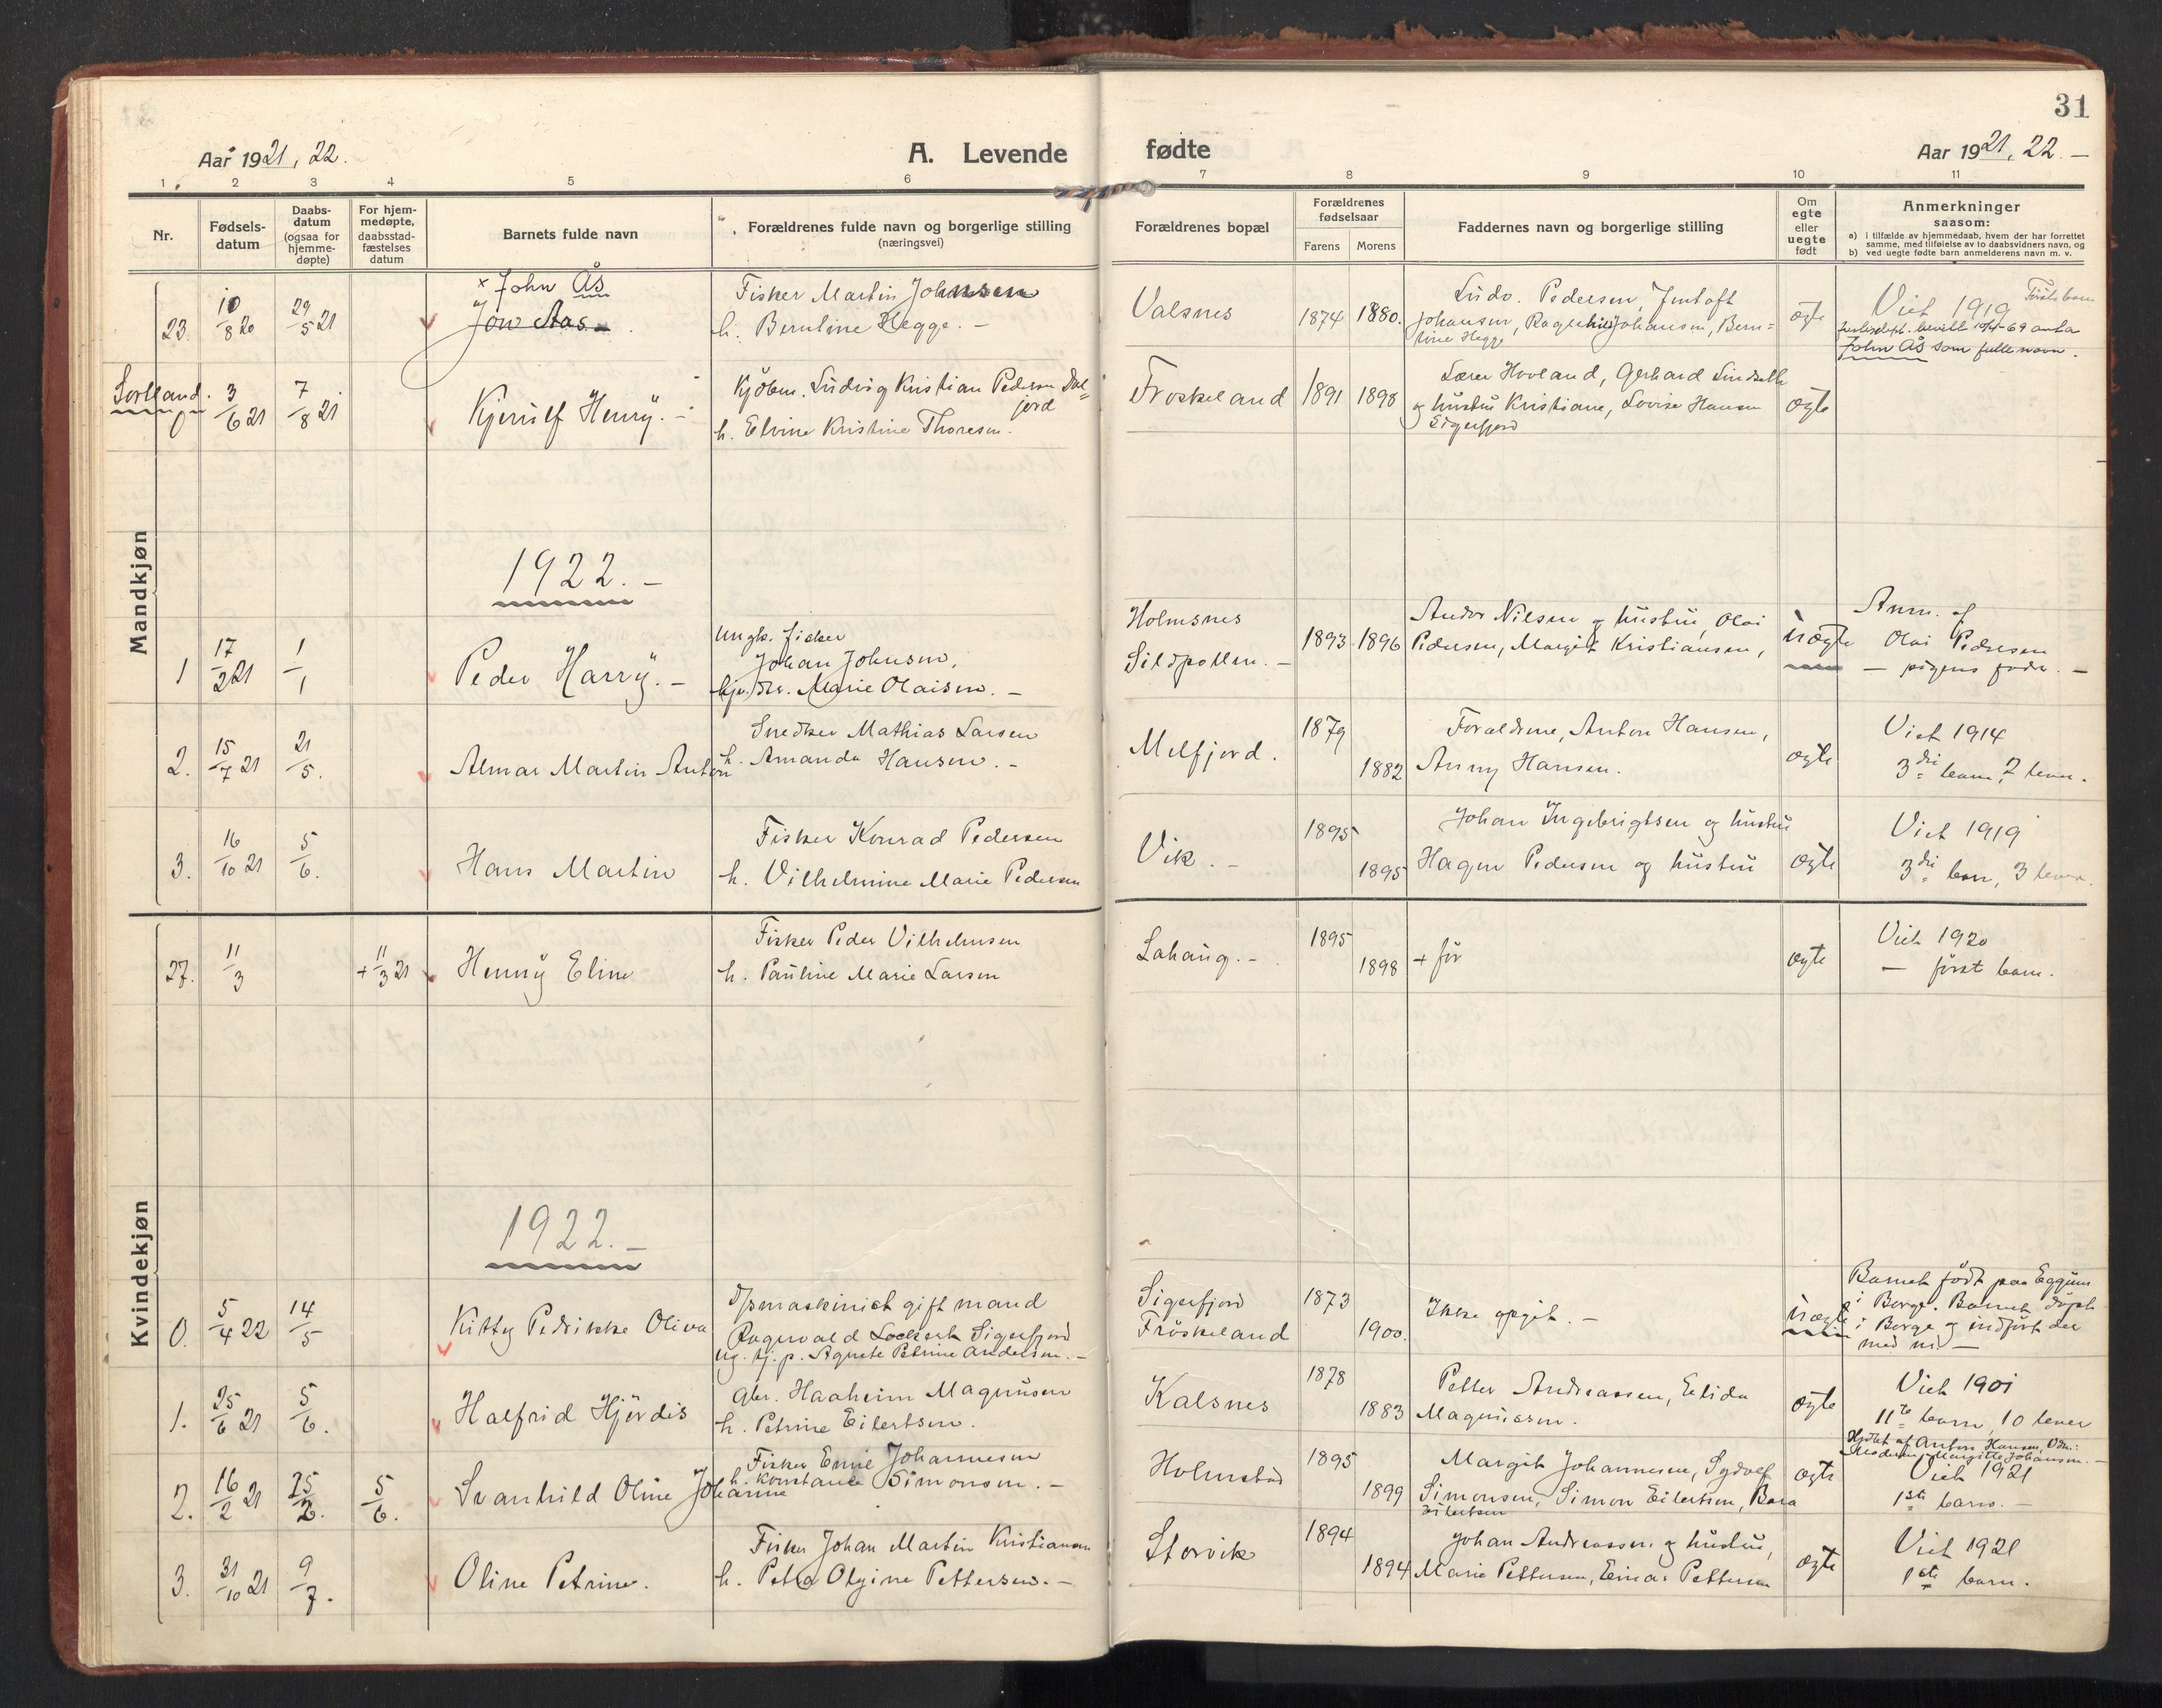 31
Aar 1921, 22.
A. Levende fødte
Aar 1921, 22. –
1 2 3 4 5 6 7 8 9 10 11
Nr.
Fødsels-
datum
Daabs-
datum
(ogsaa for
hjemme-
døpte)
For hjem-
medøpte,
daabsstad-
fæstelses
datum
Barnets fulde navn
Forældrenes fulde navn og borgerlige stilling
(næringsvei)
Forældrenes bopæl
Forældrenes
fødselsaar
Farens Morens
Faddernes navn og borgerlige stilling
Om
egte
eller
uegte
født
Anmerkninger
saasom:
a) i tilfælde av hjemmedaab, hvem der har forrettet
samme, med tilføielse av to daabsvidners navn, og
b) ved uegte fødte barn anmelderens navn m. v.
Mandkjøn
23. 10/8 20 29/5 21
× John Ås
Jow Aas
Fisker Martin Johansen
h. Berntine Hegge. –
Valsnes
1874 1880.
Ludv. Pedersen, Jentoft
Johansen, Ragnhild Johansen, Bern=
tine Hegge
ægte
Viet 1919 Første barn
John Ås som fulle navn.
Sortland.
0 3/6 21 7/8 21
Kjerulf Henry. –
Kjøbm. Ludvig Kristian Pedersen Dal=
fjord
h. Elvine Kristine Thoresen.
Froskeland
1891 1898
Lærer Hovland, Gerhard Lindseth
og hustru Kristiane, Lovise Hansen
Sigerfjord
ægte
1922. –
1 17/2 21 1/1
Peder Harry. –
Ungk. fisker
Johan Johnsen,
Marie Olaisen. –
Holmsnes
Sildpollen. –
1893. 1896
Andor Nilsen og hustru, Olai
Pedersen, Margit Kristiansen,
uægte
Anm. af
Olai Pedersen
– pigens fader. –
2. 15/7 21 21/5.
Almar Martin Anton
Snedker Mathias Larsen
h. Amanda Hansen. –
Melfjord.
1879
1882
Forældrene, Anton Hansen,
Anny Hansen.
ægte
Viet 1914
3die barn, 2 lever.
3. 16/10 21 5/6.
Hans Martin
Fisker Konrad Pedersen
h. Vilhelmine Marie Pedersen
Vik. –
1895
1895
Johan Ingebrigtsen og hustru
Hagen Pedersen og hustru
ægte
Viet 1919
3die barn, 3 lever.
Kvindekjøn
27. 11/3 + 11/3 21
Henny Eline
Fisker Peder Vilhelmsen
h. Pauline Marie Larsen
Lahaug. –
1895
1898
+ før
ægte
Viet 1920
– først barn.
1922. –
0. 5/4 22 14/5
Kitty Pedrikke Oliva
Dpsmaskinist gift mand
Ragnvald Lockert Sigerfjord
ug. tj. p. Agnete Petrine Andersen. –
Sigerfjord
Fröskeland
1873
1900.
Ikke opgit. –
uægte
Barnet født paa Eggum
i Borge. Barnet døpt
i Borge og indført der
med nr –
1. 25/6 21 5/6.
Halfrid Hjördis
Gbr. Haaheim Magnusen
h. Petrine Eilertsen.
Kalsnes
1878
1883
Petter Andreassen, Elida
Magnussen.
ægte
Viet 1901
11te barn, 10 lever
2. 16/2 21 25/2. 5/6.
Svanhild Oline Johanne
Fisker Emil Johannesen
h. Konstance Simonsen. –
Holmstad
1895
1899
Margit Johannesen, Sydolf
Simonsen, Simon Eilertsen, Bara
Eilertsen
ægte
Hjdbt af Anton Hansen, Vdn:
Moderen, Margitte Johansen. –
Viet 1921
1ste barn. –
3. 31/10 21 9/7.
Oline Petrine.
Fisker Johan Martin Kristiansen
h. Petra Olgine Pettersen. –
Storvik
1894
1894
Johan Andreassen og hustru,
Marie Pettersen, Einar Pettersen
ægte
Viet 1921
1ste barn.